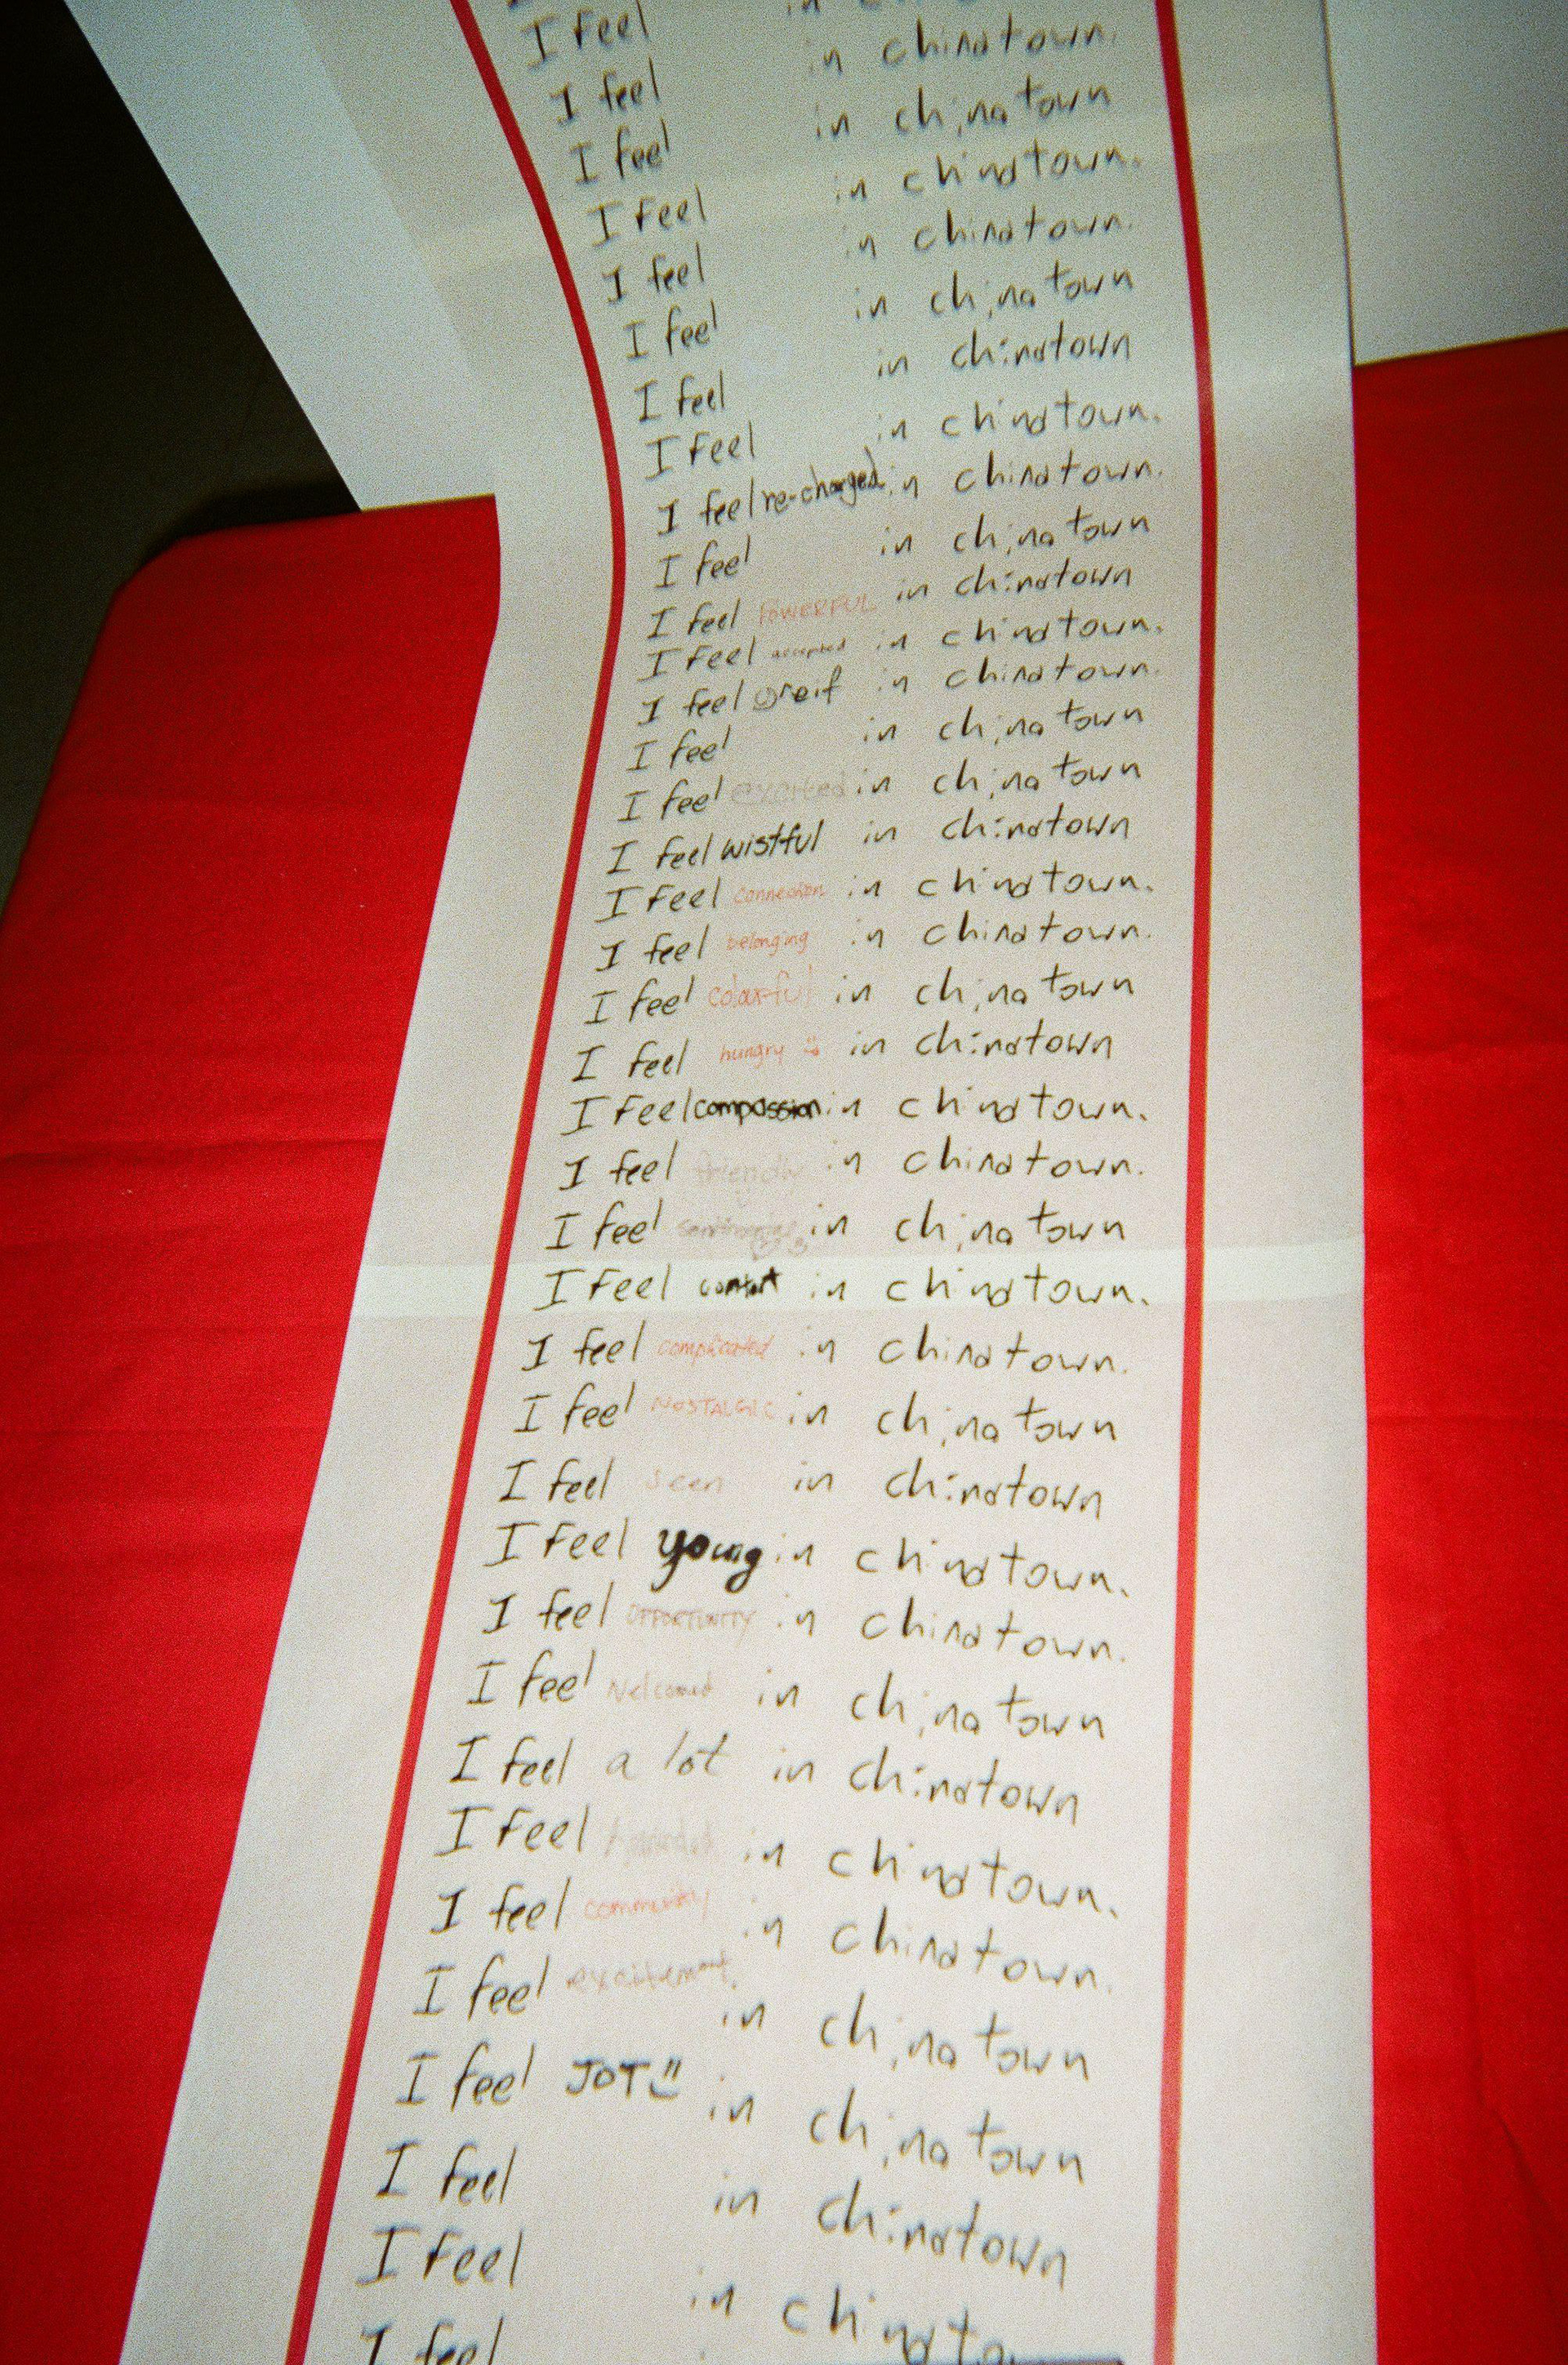 in
I feel in chinatown.
I feel in chinatown
I feel in chinatown.
I feel in chinatown.
I feel in chinatown
I feel in chinatown
I feel in chinatown.
I feel re-charged in chinatown.
I feel in chinatown
I feel POWERFUL in chinatown
I feel accepted in chinatown.
I feel greif in chinatown.
I feel in chinatown
I feel excited in chinatown
I feel wistful in chinatown
I feel connection in chinatown.
I feel belonging in chinatown.
I feel colorful in chinatown
I feel hungry in chinatown
I feel compassion in chinatown.
I feel friendly in chinatown.
I feel in chinatown
I feel in chinatown.
I feel complicated in chinatown.
I feel NOSTALGIC in chinatown
I feel seen in chinatown
I feel young in chinatown.
I feel OPPORTUNITY in chinatown.
I feel Welcomed in chinatown
I feel a lot in chinatown
I feel in chinatown.
I feel community in chinatown.
I feel excitement in chinatown
I feel JOY in chinatown
I feel in chinatown
I feel in
I feel